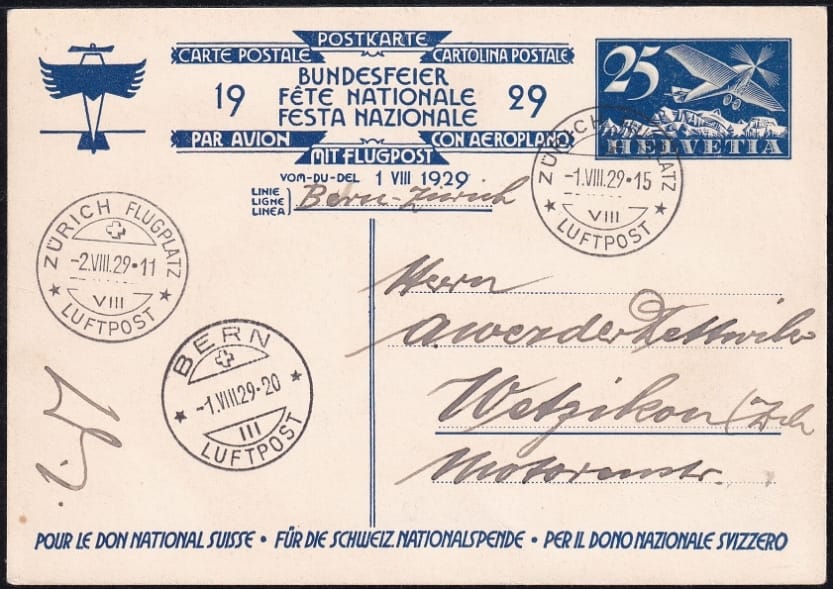 POSTKARTE
CARTE POSTALE CARTOLINA POSTALE
BUNDESFEIER
19 FÊTE NATIONALE 29
FESTA NAZIONALE
PAR AVION CON AEROPLANO
MIT FLUGPOST
VOM-DU-DEL 1 VIII 1929
LINIE
LIGNE
LINEA
Bern-Zürich
25
HELVETIA
ZÜRICH FLUGPLATZ
-1.VIII.29·15
VIII
LUFTPOST
ZÜRICH FLUGPLATZ
-2.VIII.29·11
VIII
LUFTPOST
BERN
-1.VIII.29·20
III
LUFTPOST
Herrn
Wetzikon (Zch
Motorenstr.
POUR LE DON NATIONAL SUISSE · FÜR DIE SCHWEIZ. NATIONALSPENDE · PER IL DONO NAZIONALE SVIZZERO